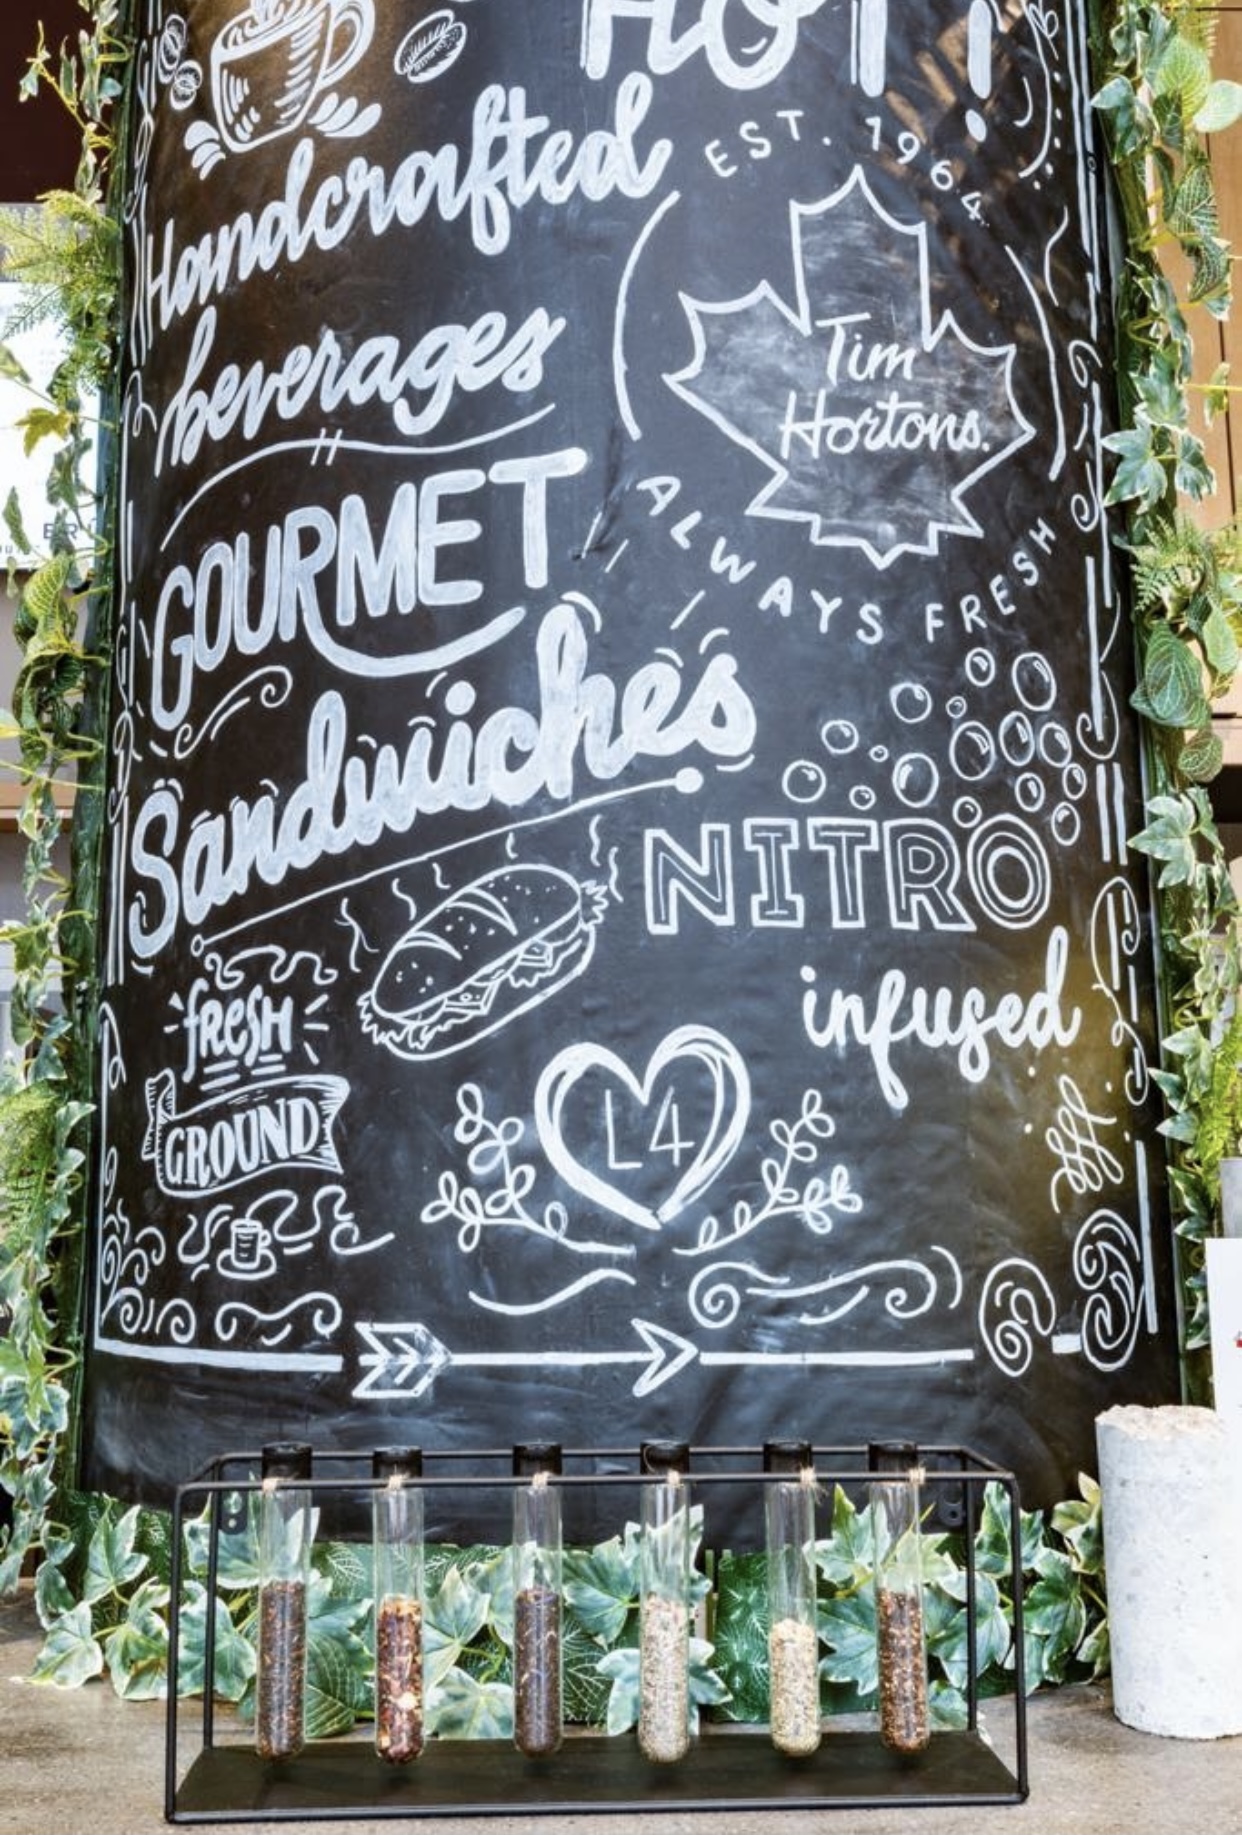 HOT!
Handcrafted
beverages
EST. 1964
Tim
Hortons.
ALWAYS FRESH
GOURMET
Sandwiches
NITRO
infused
fresh
GROUND
L4